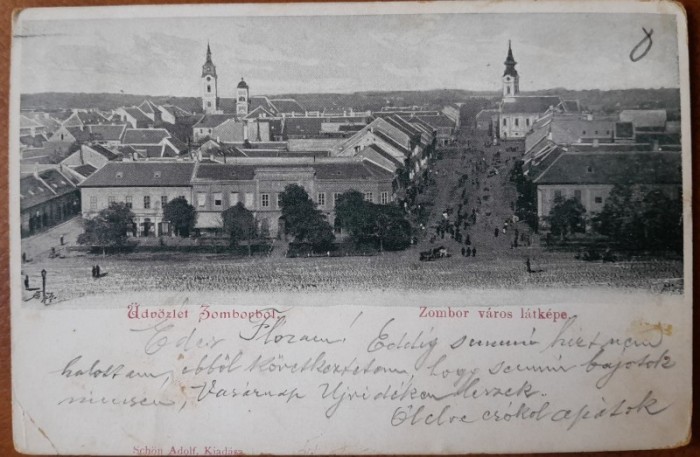 Üdvözlet Zomborból.
Zombor város látképe.
Édes Flórám! Eddig semmi hírt nem
halottam, ebből következtetem, hogy semmi bajotok
nincsen, Vasárnap Ujvidéken leszek.
Ölelve csókol apátok
Schön Adolf. Kiadása